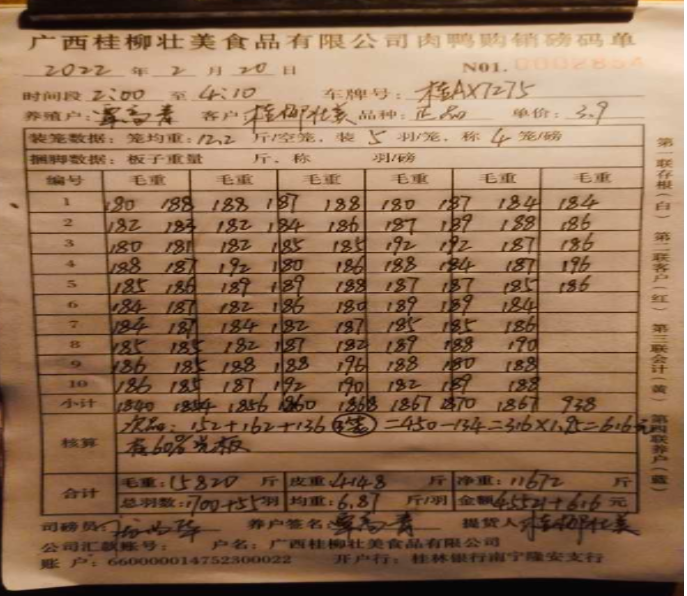 广西桂柳壮美食品有限公司肉鸭购销磅码单
2022 年 2 月 20 日 N01. 0002854
时间段 2:00 至 4:10 车牌号: 桂AX7275
养殖户: 覃高青 客户: 桂柳壮美 品种: 正品 单价: 3.9
装笼数据: 笼均重: 12.2 斤/空笼, 装 5 羽/笼, 称 4 笼/磅
捆脚数据: 板子重量 斤, 称 羽/磅
编号 毛重 毛重 毛重 毛重 毛重 毛重
1 180 188 188 187 188 180 187 184 184
2 182 183 182 184 186 187 189 188 186
3 180 181 182 185 185 192 192 187 186
4 188 187 192 180 186 188 184 187 196
5 185 186 189 189 188 187 187 185 186
6 184 187 182 186 180 189 189 184
7 184 187 184 182 187 185 185 186
8 185 185 182 187 182 189 188 190
9 186 185 188 188 196 188 180 188
10 186 185 187 192 190 182 189 188
小计 1840 1854 1856 1860 1868 1867 1870 1867 938
核算 次品: 152+162+136 3笼 =450-134=316×1.95=616元
有60%光板
合计 毛重: 15820 斤 皮重: 4148 斤 净重: 11672 斤
总羽数: 1700+55羽 均重: 6.87 斤/羽 金额 45521+616 元
司磅员 养户签名 覃高青 提货人 桂柳壮美
公司汇款账号: 户名: 广西桂柳壮美食品有限公司
账 户: 660000014752300022 开户行: 桂林银行南宁隆安支行
第一联存根(白) 第二联客户(红) 第三联会计(黄) 第四联养户(蓝)